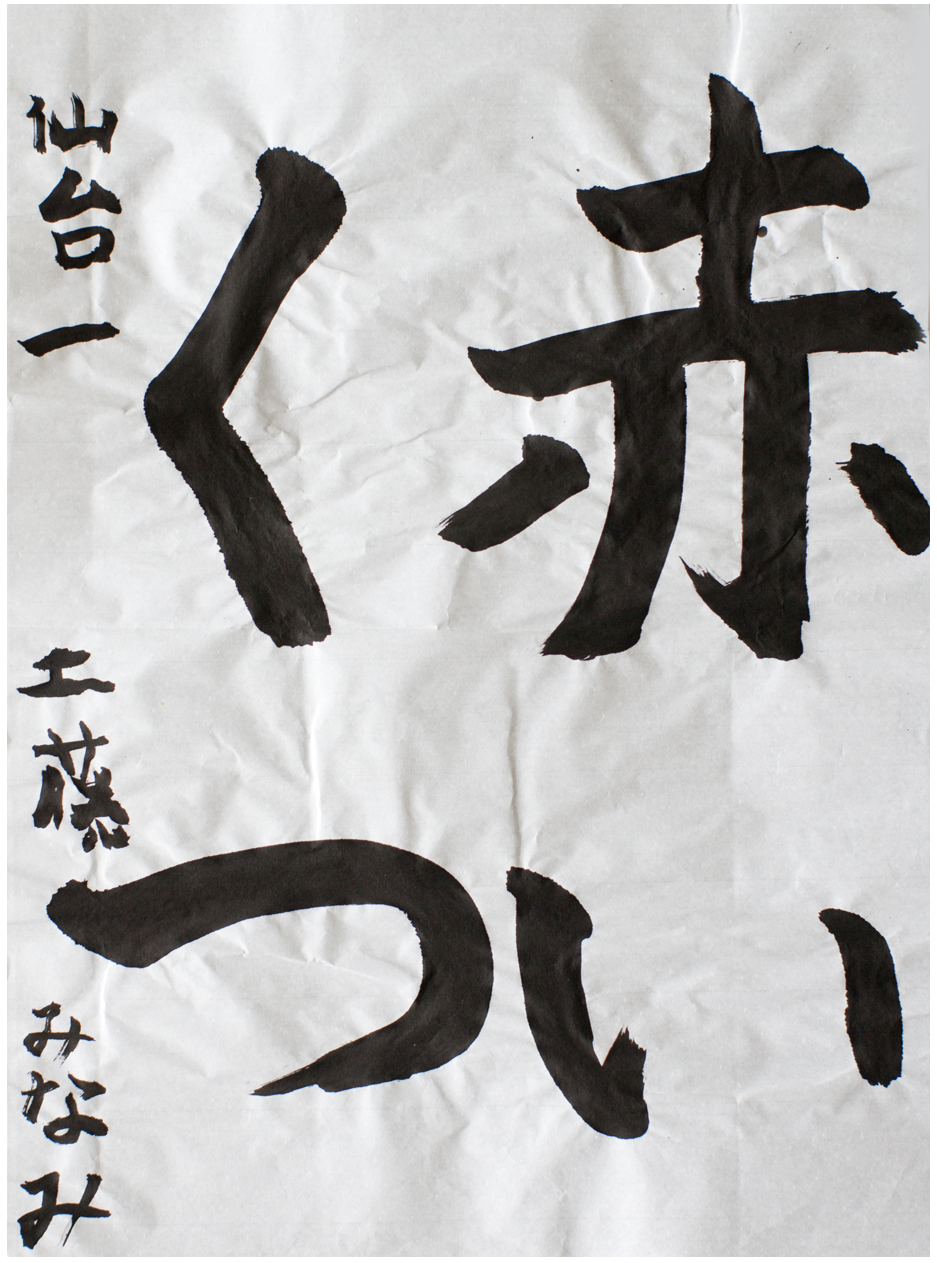 赤い
くつ
仙台一 工藤 みなみ